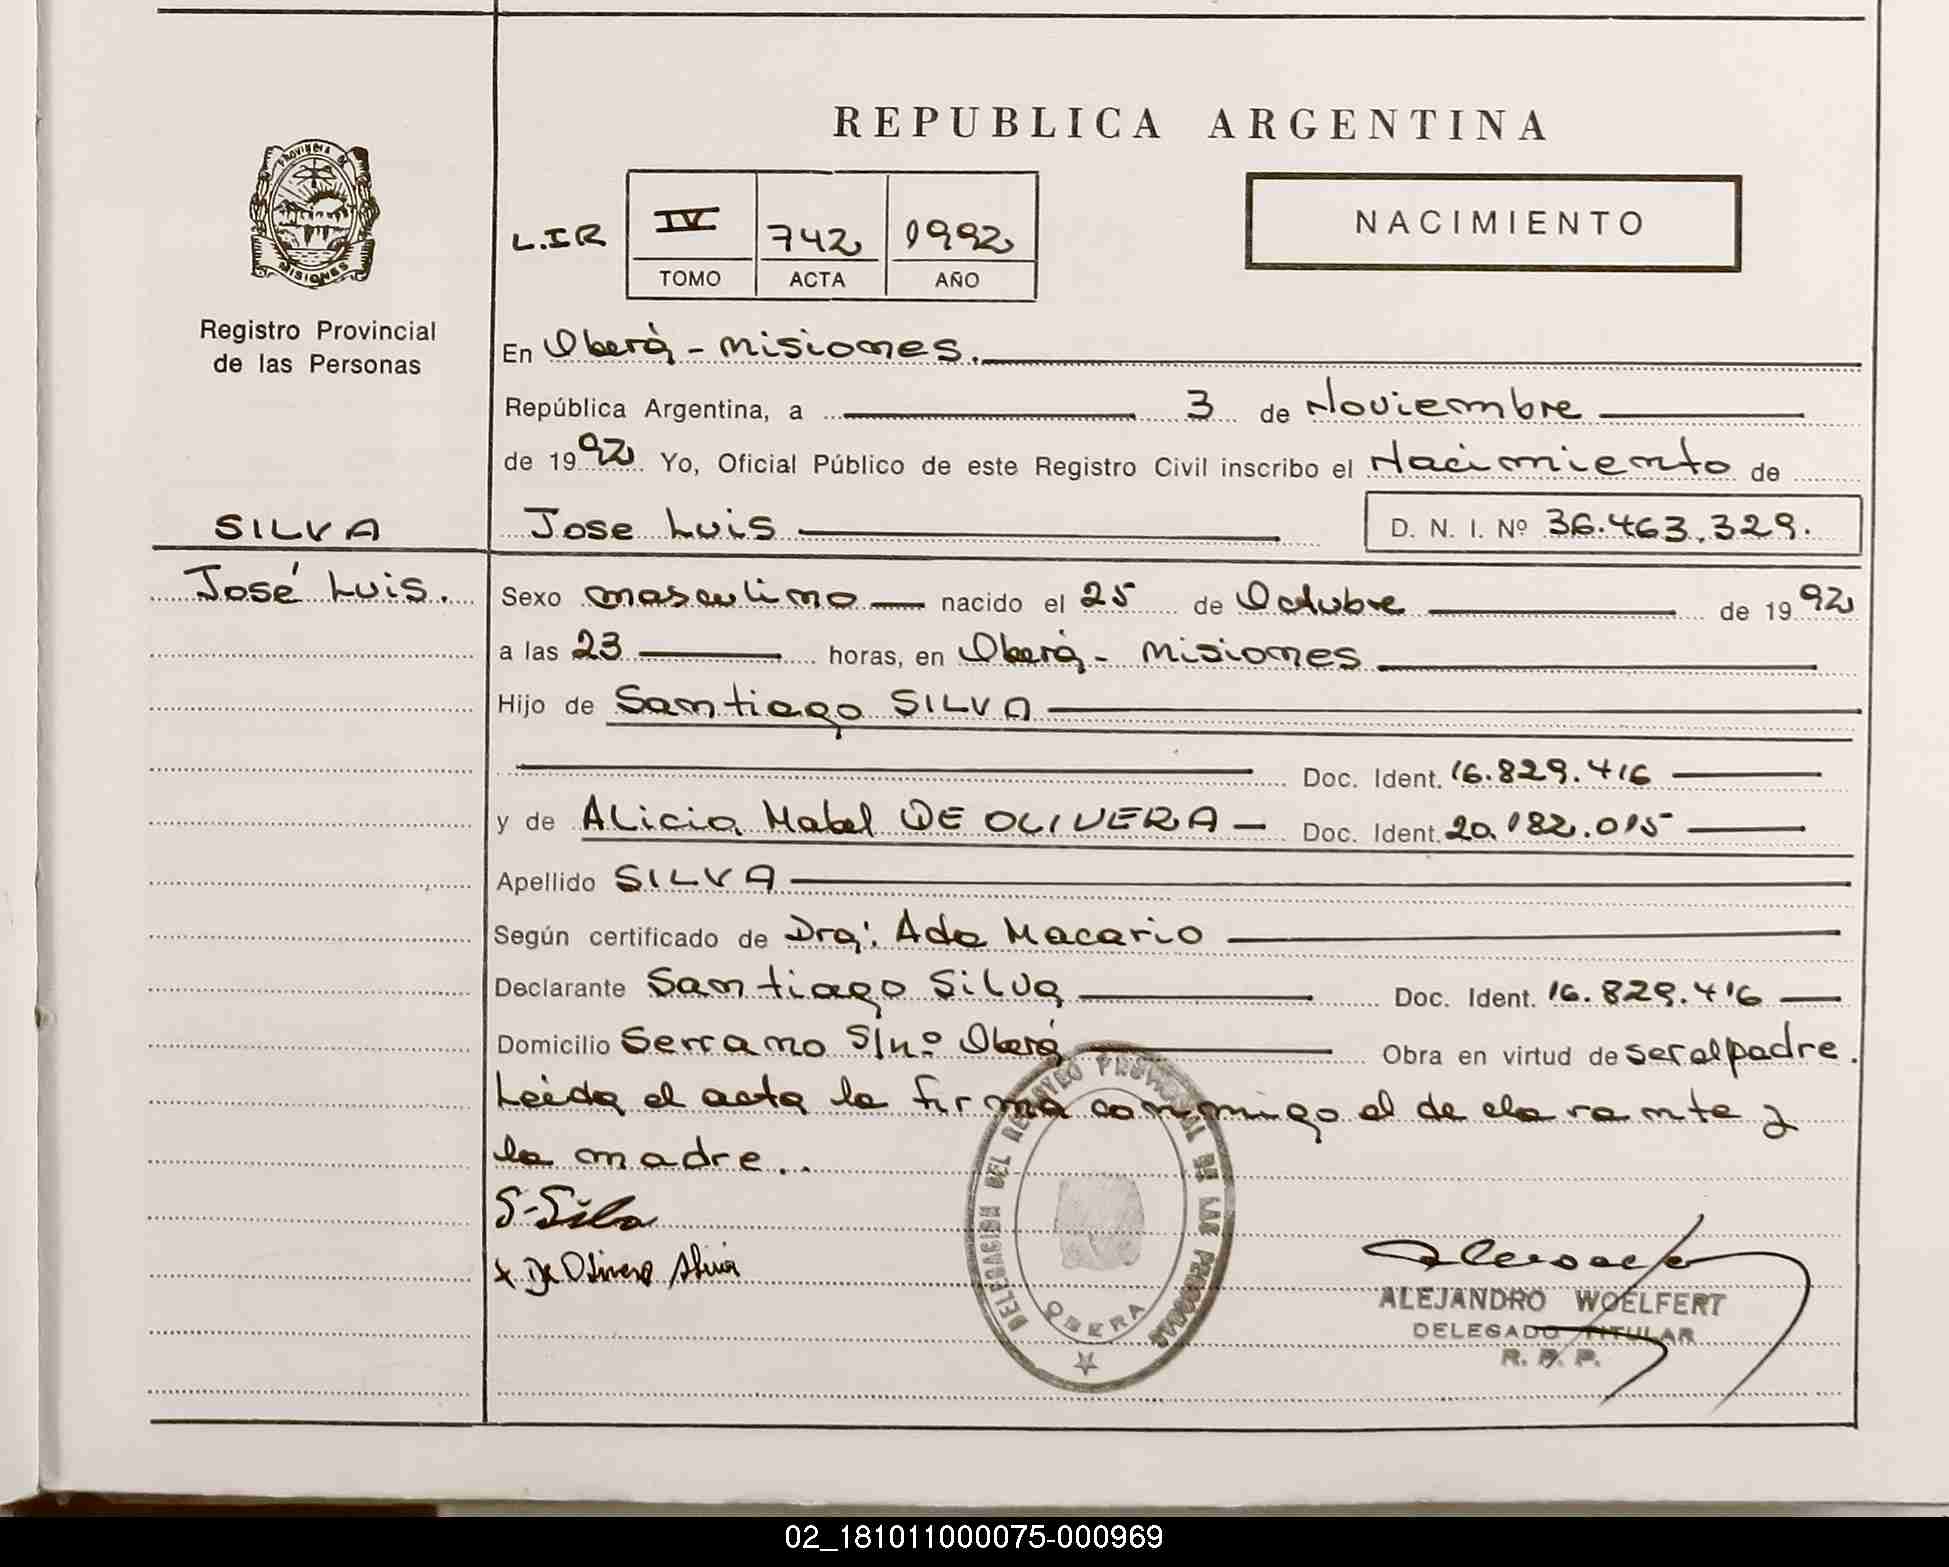 REPUBLICA ARGENTINA
PROVINCIA DE
MISIONES
Registro Provincial
de las Personas
L.IR
IV 742 1992
TOMO ACTA AÑO
NACIMIENTO
En Oberá - Misiones.
República Argentina, a 3 de Noviembre
de 1992 Yo, Oficial Público de este Registro Civil inscribo el Nacimiento de
SILVA
José Luis.
Jose Luis D. N. I. Nº 36.463.329.
Sexo masculino nacido el 25 de Octubre de 1992
a las 23 horas, en Oberá - Misiones
Hijo de Santiago SILVA
Doc. Ident. 16.829.416
y de Alicia Mabel DE OLIVERA Doc. Ident. 20.182.015
Apellido SILVA
Según certificado de Dra: Ada Macario
Declarante Santiago Silva Doc. Ident. 16.829.416
Domicilio Serrano S/nº Oberá Obra en virtud de ser el padre.
Leida el acta la firma conmigo el declarante y
la madre..
S-Silva
x De Olivera Alicia
DELEGACION DEL REGISTRO PROVINCIAL DE LAS PERSONAS
OBERA
ALEJANDRO WOELFERT
DELEGADO TITULAR
R. P. P.
02_181011000075-000969